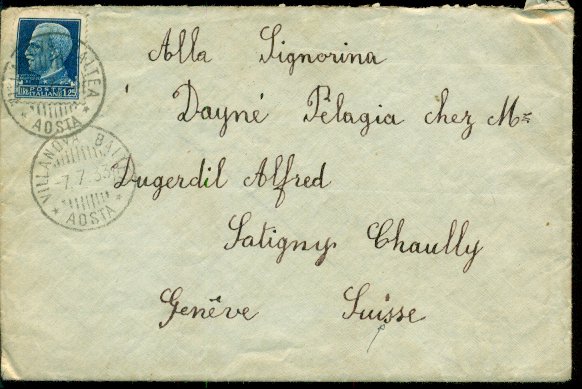 Alla Signorina
Dayné Pélagia chez Mr
Dugerdil Alfred
Satigny Chaully
Genève Suisse
POSTE
ITALIANE 1,25
AOSTA
VILLANOVA BALTEA
-7.7.33
AOSTA